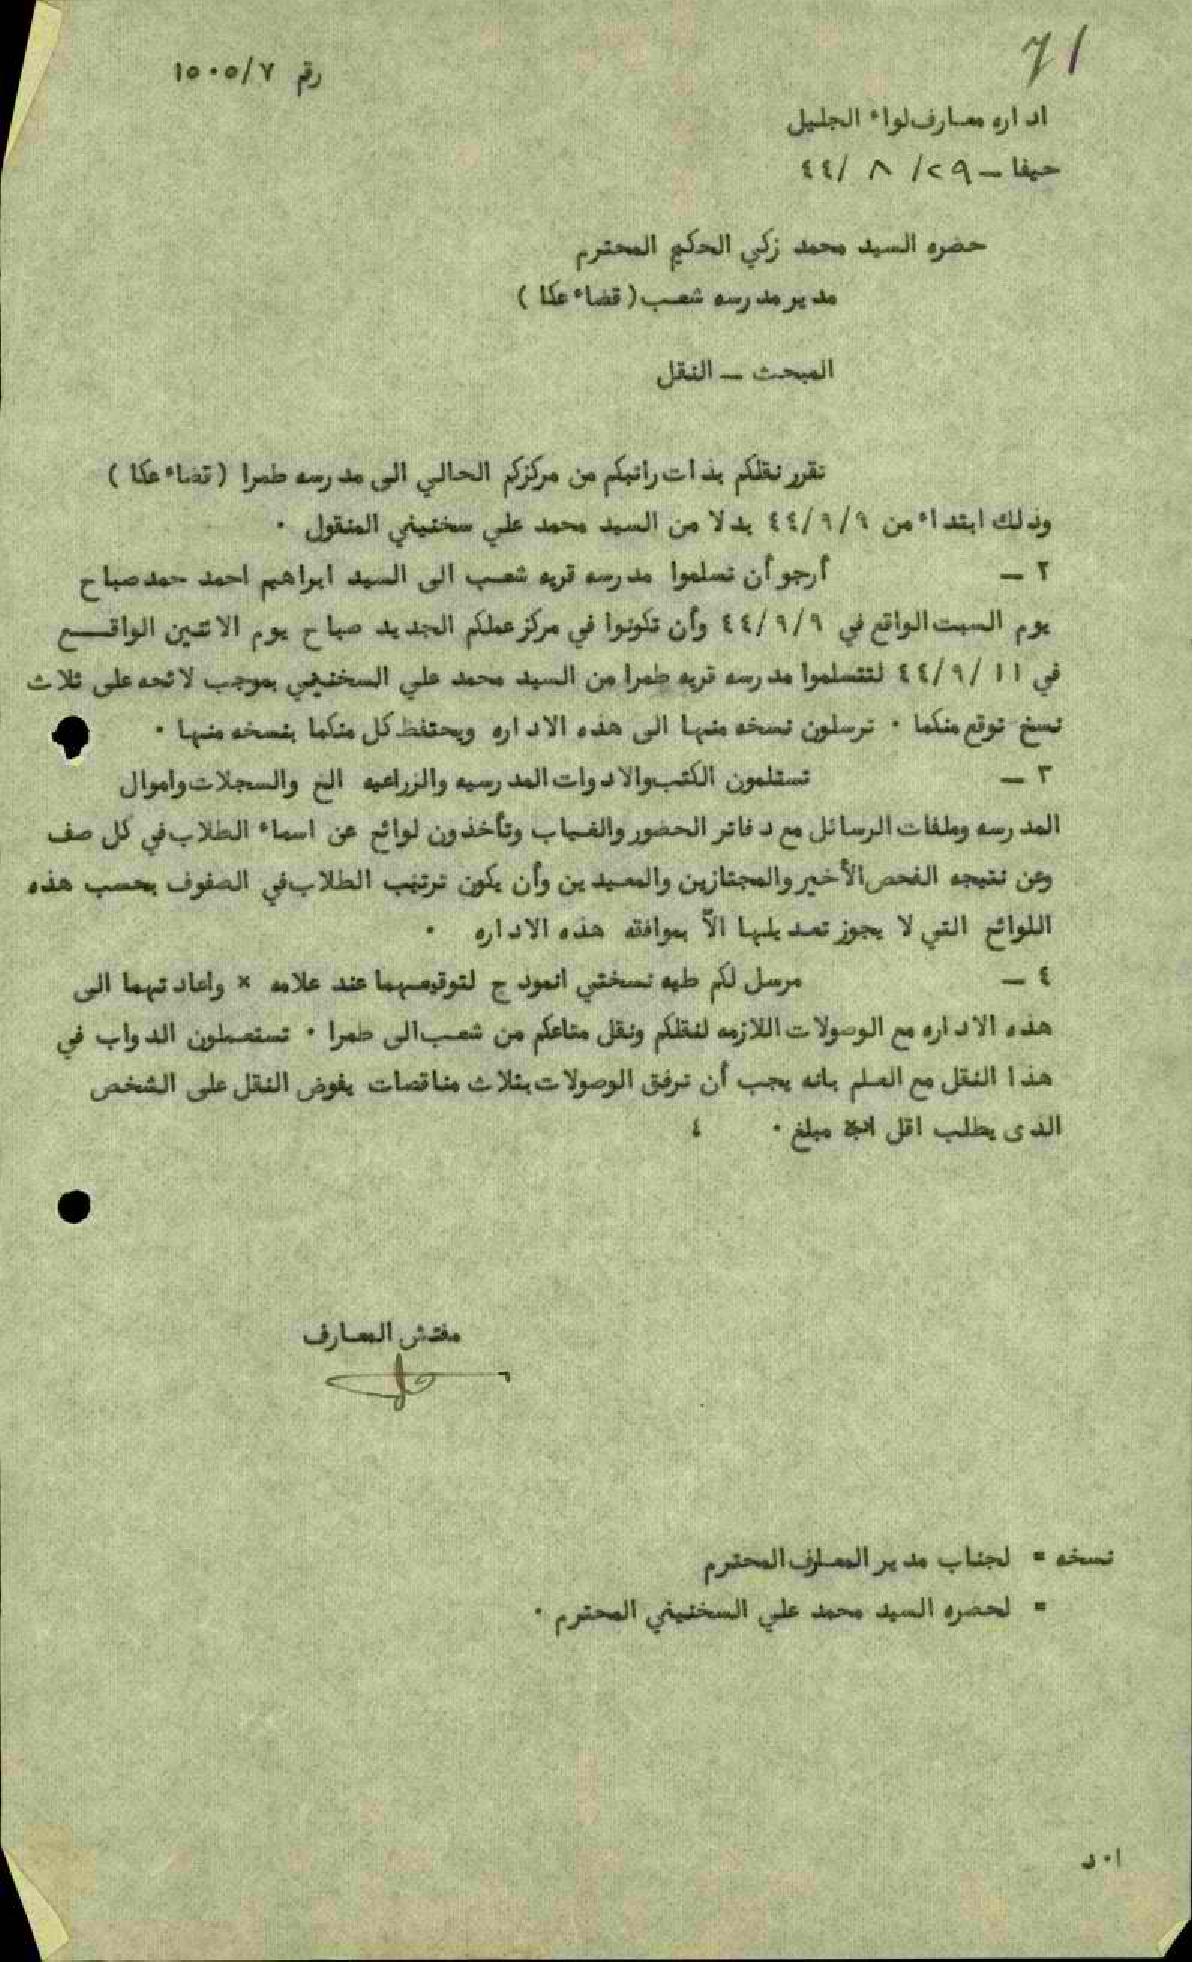 71
رقم ١٥٠٥/٧
اداره معارف لواء الجليل
حيفا – ٢٩/ ٨ /٤٤
حضره السيد محمد زكي الحكيم المحترم
مدير مدرسه شعب (قضاء عكا)
المبحث – النقل
تقرر نقلكم بذات راتبكم من مركزكم الحالي الى مدرسه طمرا (قضاء عكا)
وذلك ابتداء من ٤٤/٩/٩ بدلا من السيد محمد علي سخنيني المنقول .
٢ – أرجو أن تسلموا مدرسه قريه شعب الى السيد ابراهيم احمد حمد صباح
يوم السبت الواقع في ٤٤/٩/٩ وأن تكونوا في مركز عملكم الجديد صباح يوم الاثنين الواقع
في ٤٤/٩/١١ لتتسلموا مدرسه قريه طمرا من السيد محمد علي السخنيني بموجب لائحه على ثلاث
نسخ توقع منكما . ترسلون نسخه منها الى هذه الاداره ويحتفظ كل منكما بنسخه منها .
٣ – تستلمون الكتب والادوات المدرسيه والزراعيه الخ والسجلات واموال
المدرسه وملفات الرسائل مع دفاتر الحضور والغياب وتأخذون لوائح عن اسماء الطلاب في كل صف
وعن نتيجه الفحص الأخير والمجتازين والمعيدين وأن يكون ترتيب الطلاب في الصفوف بحسب هذه
اللوائح التي لا يجوز تعديلها الاّ بموافقه هذه الاداره .
٤ – مرسل لكم طيه نسختي انموذج لتوقيعهما عند علامه × واعادتهما الى
هذه الاداره مع الوصولات اللازمه لنقلكم ونقل متاعكم من شعب الى طمرا . تستعملون الدواب في
هذا النقل مع العلم بانه يجب أن ترفق الوصولات بثلاث مناقصات يفوض النقل على الشخص
الذى يطلب اقل مبلغ . ٤
مفتش المعارف
نسخه = لجناب مدير المعارف المحترم
= لحضره السيد محمد علي السخنيني المحترم .
ا.د